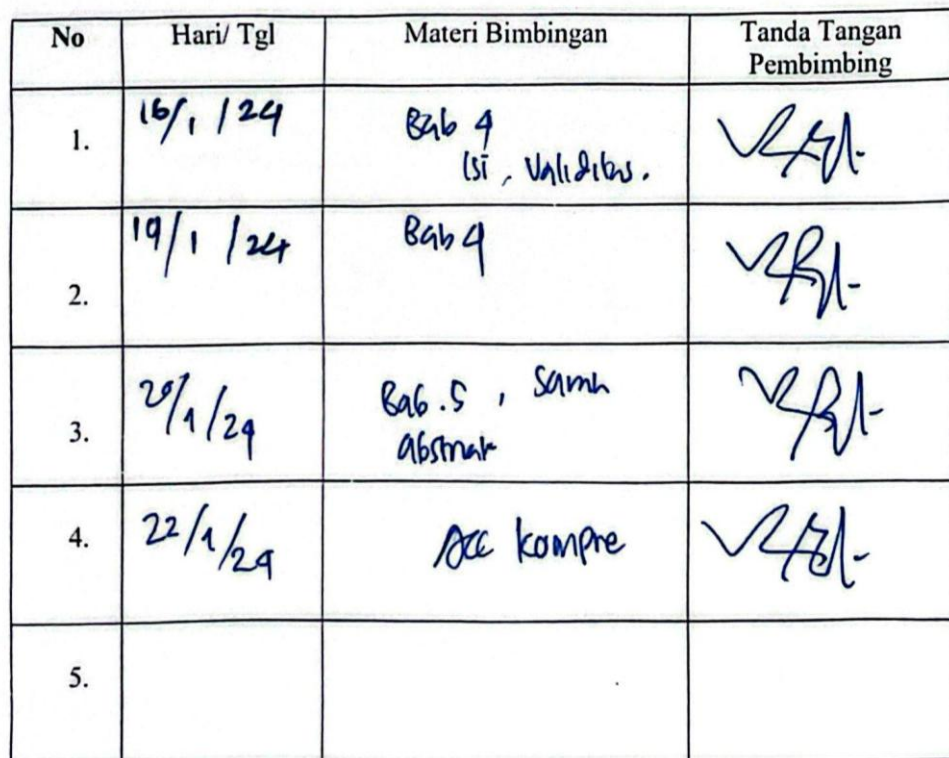 No Hari/ Tgl Materi Bimbingan Tanda Tangan
Pembimbing
1. 16/1/24 Bab 4
Isi, Validitas.
2. 19/1/24 Bab 4
3. 20/1/24 Bab.5,
abstrak
4. 22/1/24 Acc kompre
5.